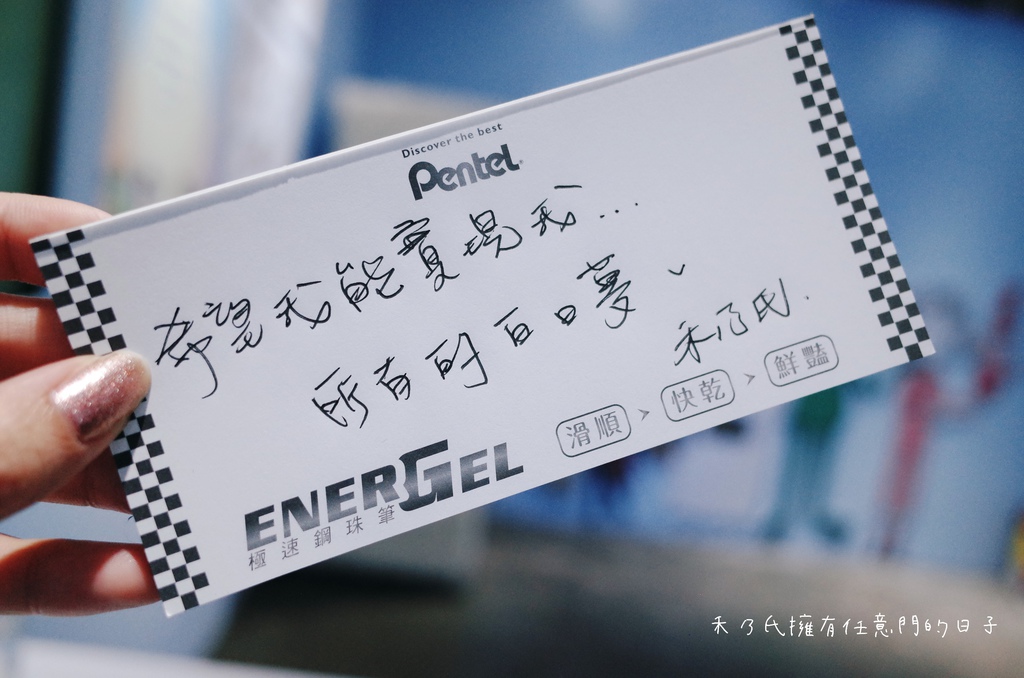 Discover the best
Pentel
希望我能實現我...
所有的白日夢、
禾乃氏.
滑順 > 快乾 > 鮮豔
ENERGEL
極速鋼珠筆
禾乃氏擁有任意門的日子